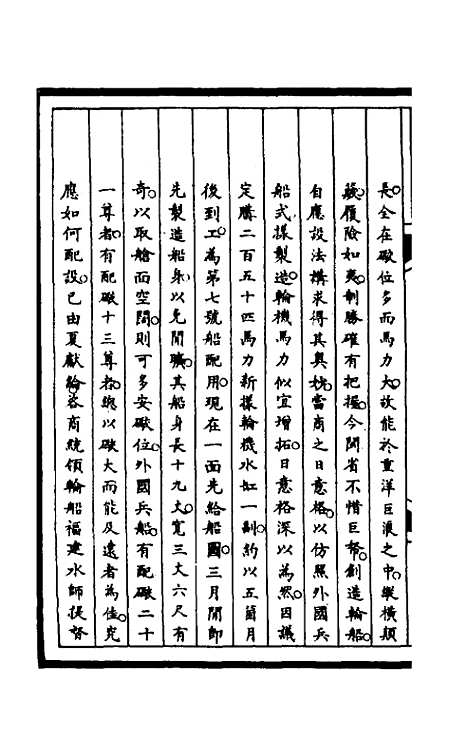 長。全在礮位多而馬力大。故能於重洋巨浪之中。縱橫顛
簸。履險如夷。制勝確有把握。今閩省不惜巨帑。創造輪船。
自應設法構求得其奧妙。當商之日意格。以仿照外國兵
船式樣製造。輪機馬力似宜增拓。日意格深以為然。因議
定購二百五十匹馬力新樣輪機水缸一副。約以五箇月
後到工。為第七號船配用。現在一面先給船圖。三月間即
先製造船身。以免閒曠。其船身長十九丈。寬三丈六尺有
奇。以取艙面空闊。則可多安礮位。外國兵船。有配礮二十
一尊者。有配礮十三尊者。總以礮大而能及遠者為佳。究
應如何配設。已由夏獻綸咨商統領輪船福建水師提督